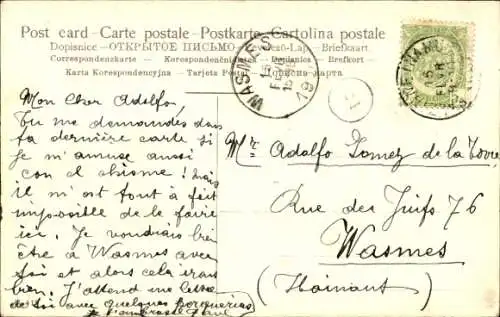 Post card - Carte postale - Postkarte - Cartolina postale
Dopisnice - ОТКРЫТОЕ ПИСЬМО - Levelező-Lap - Briefkaart
Correspondenzkarte - Korespondenční - Dopisnica - Brefkort
Karta Korespondencyjna - Tarjeta Postal - карта
WASMES
15
Mon Cher Adolfo,
Tu me demandes dans
ta dernière carte si
je m'amuse aussi
con el chisme! mais
il m'est tout à fait
impossible de le faire
ici. Je voudrais bien
être à Wasmes avec
toi et alors cela irait
bien. J'attend une lettre
de toi avec quelques porquerias
Je t'embrasse Paul
Mr Adolfo Gomez de la Torre
Rue des Juifs 76
Wasmes
(Hainaut)